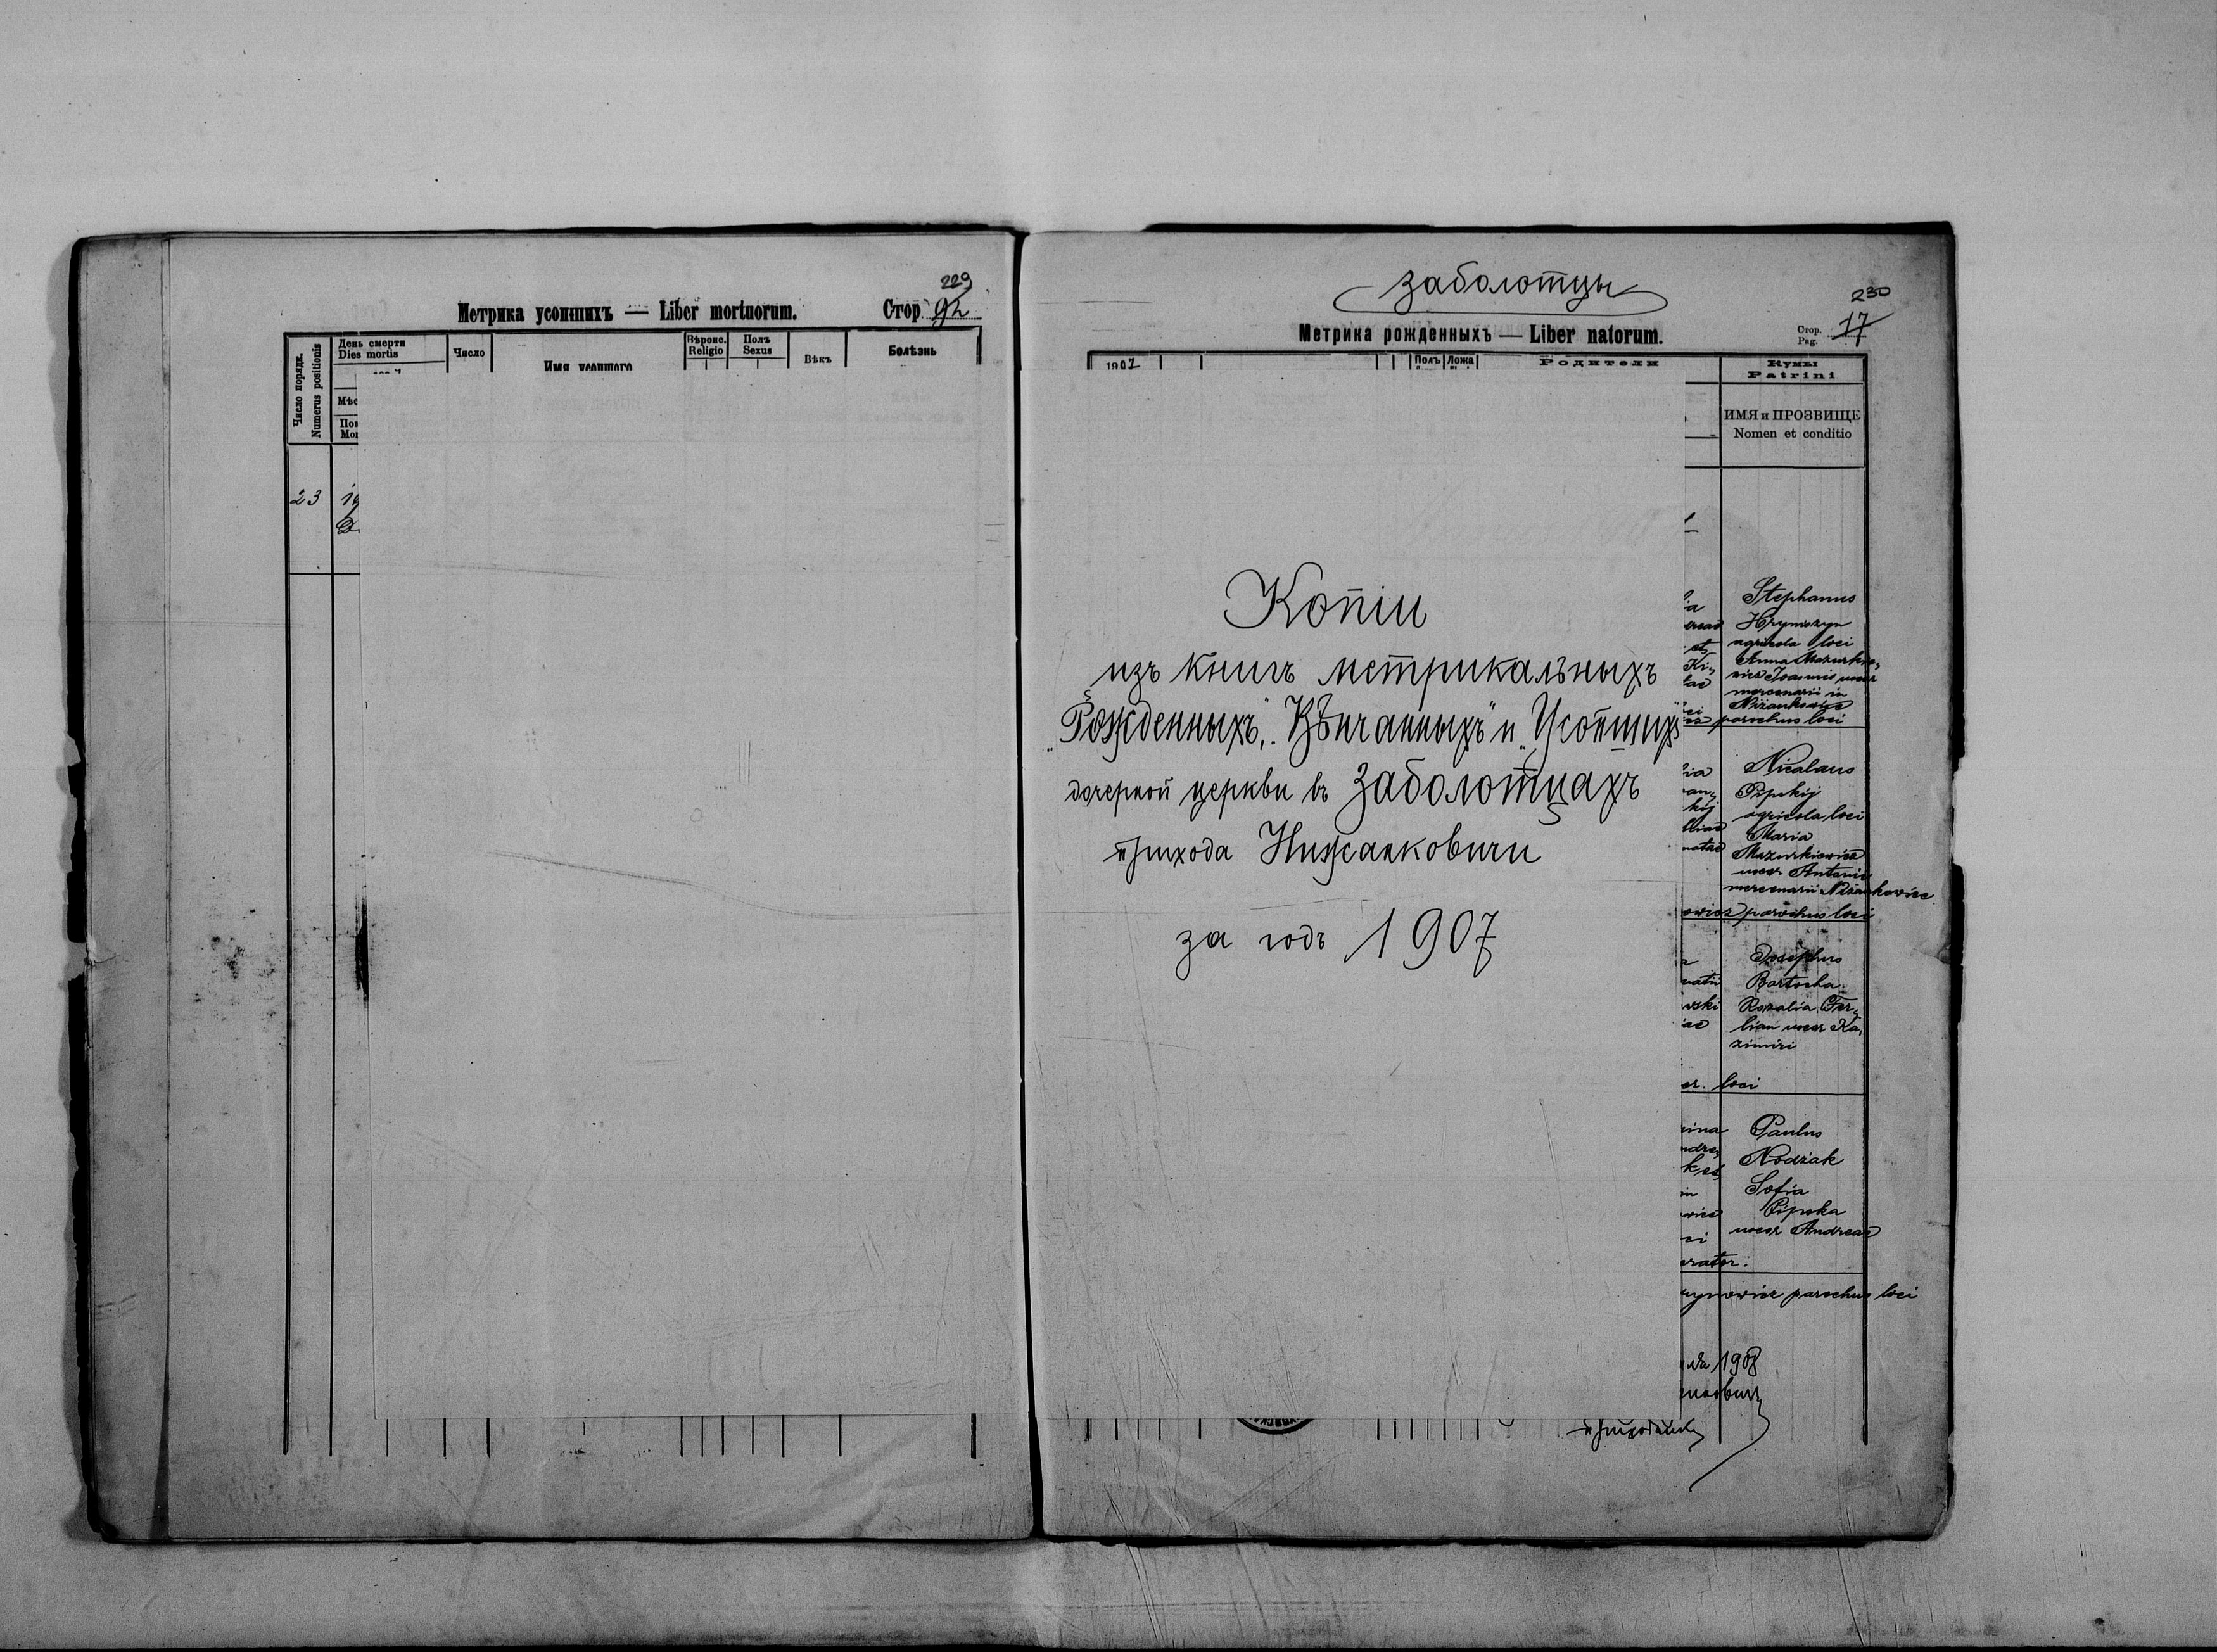 229
Метрика усопшихъ — Liber mortuorum. Стор. 92
Число порядк.
Numerus positionis
День смерти
Dies mortis
Число
Имя усопшого
Вѣроис.
Religio
Полъ
Sexus
Вѣкъ
Болѣзнь
Мѣс
По
Mo
23 19
D
заболотцы
230
Метрика рожденныхъ — Liber natorum.
Стор.
Pag. 17
1907
Полъ
Ложа
Родители
Кумы
Patrini
ИМЯ и ПРОЗВИЩЕ
Nomen et conditio
Копіи
изъ книгъ метрикальныхъ
„Рожденныхъ", „Вѣнчанныхъ" и „Усопших
дочерной церкви въ Заболотцахъ
прихода Нижанковичи
за годъ 1907
Stephanus
Hrymszyn
agricola loci
Anna Mazurkie-
wicz Joannis uxor
mercenarii in
Niżankowice
parochus loci
Nicolaus
Pipskij
agricola loci
Maria
Mazurkiewicz
uxor Antonii
mercenarii Niżankowice
owicz parochus loci
Josephus
Bartocha
Rozalia Fer-
lian uxor Ka-
zimiri
er. loci
Paulus
Nodżak
Sofia
Pipska
uxor Andreae
erator.
ynowicz parochus loci
1908
приходникъ